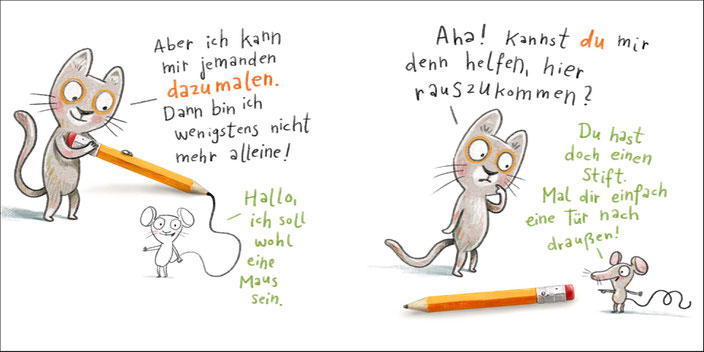 Aber ich kann
mir jemanden
dazumalen.
Dann bin ich
wenigstens nicht
mehr alleine!
Hallo,
ich soll
wohl
eine
Maus
sein.
Aha! Kannst du mir
denn helfen, hier
rauszukommen?
Du hast
doch einen
Stift.
Mal dir einfach
eine Tür nach
draußen!